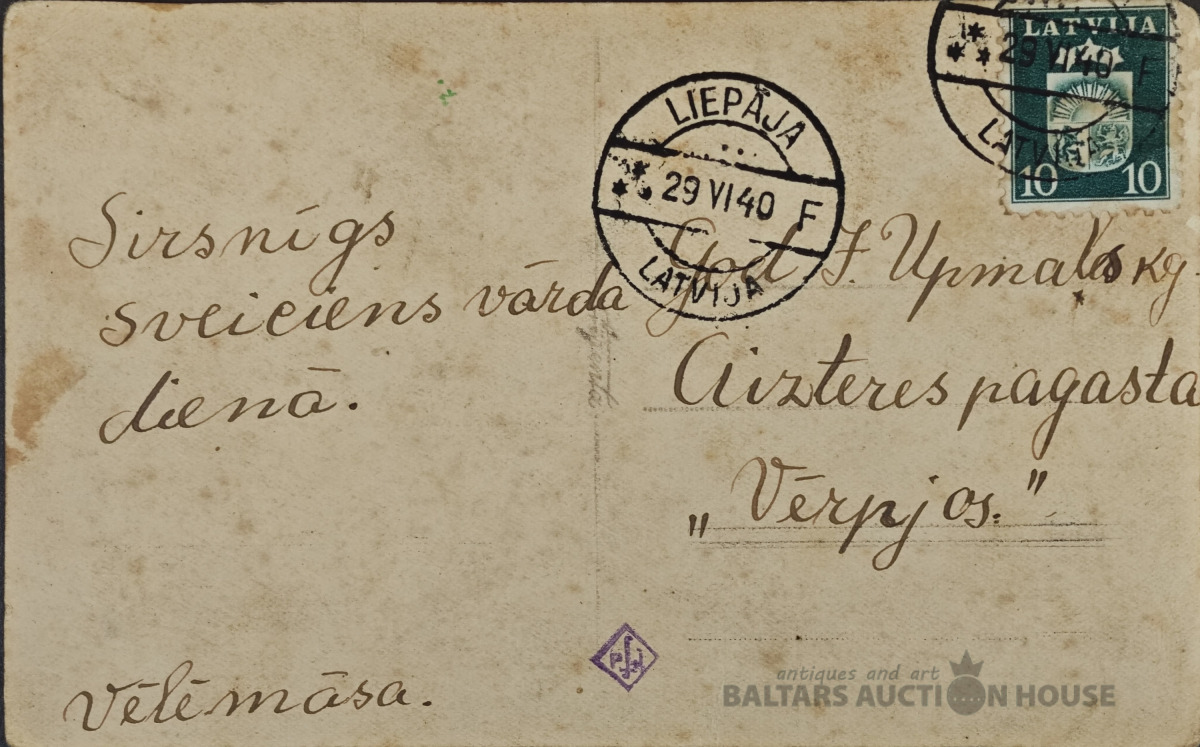 LATVIJA
29 VI 40 F
LATVIJA
10 10
LIEPĀJA
29 VI 40 F
LATVIJA
Sirsnīgs
sveiciens vārda
dienā.
Vēlē māsa.
God J. Upmalis kg
Aizteres pagasta
„Vērpjos."
antiques and art
BALTARS AUCTION HOUSE